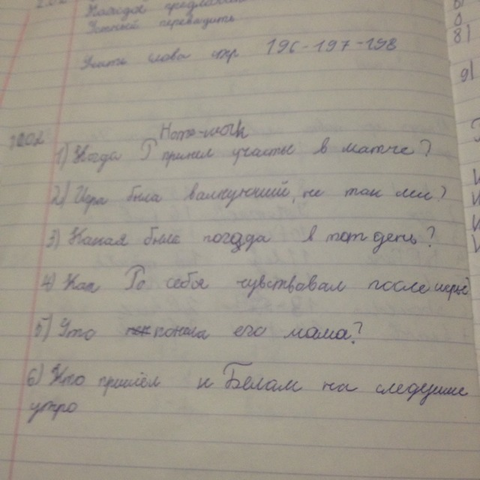 Каждое предложение
устной переводить
Учить слова стр 196-197-198
10.02 Home-work
1) Когда Г принел участие в матче?
2) Игра была валнующий, не так ли?
3) Какая была погода в тот день?
4) Как Го себя чувствавал после игры
5) Что поняла его мама?
6) Кто пришёл к Белам на следущие
утро
8)
9)